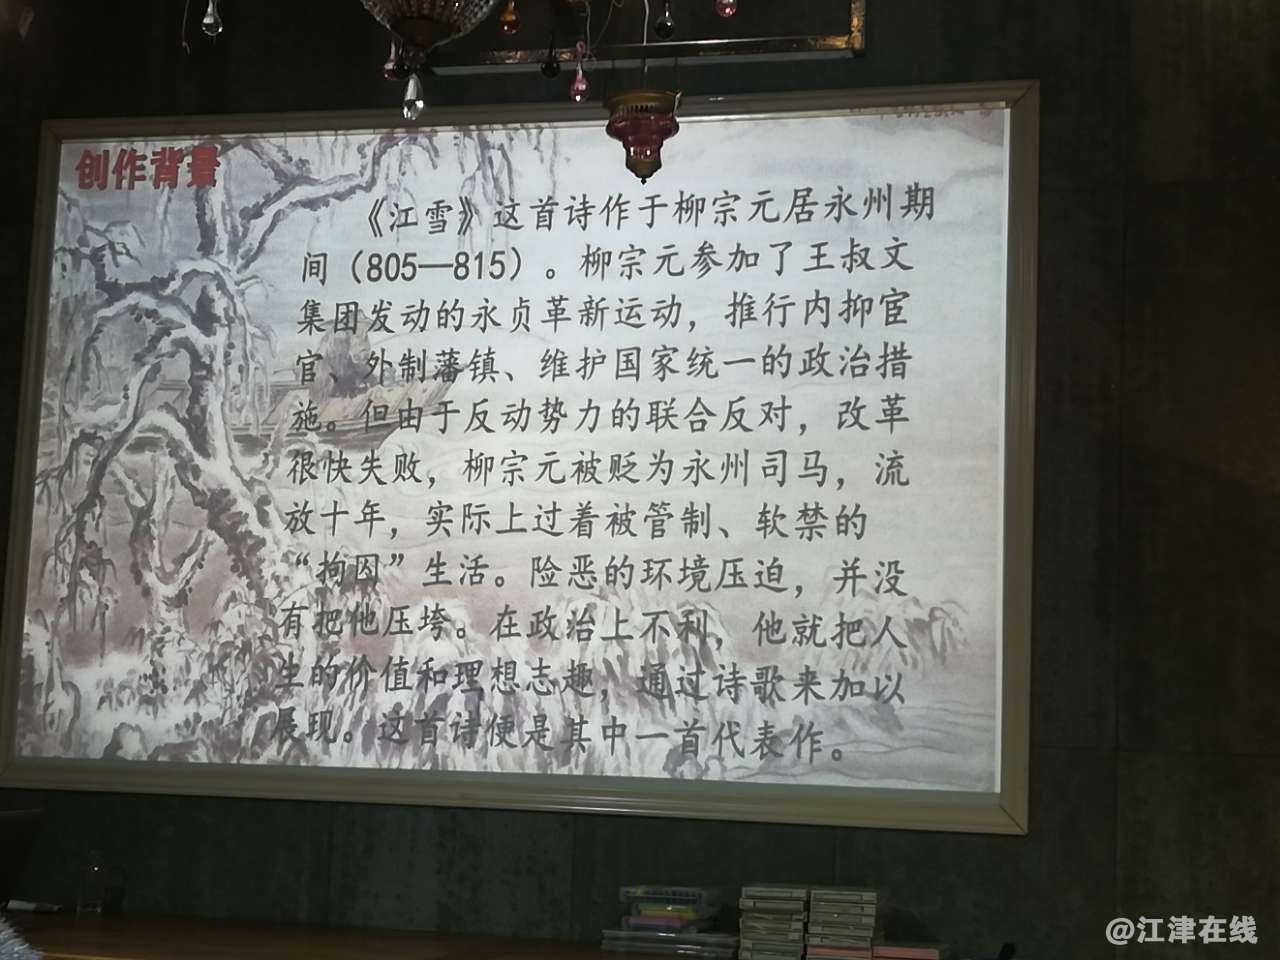 创作背景
《江雪》这首诗作于柳宗元居永州期
间（805—815）。柳宗元参加了王叔文
集团发动的永贞革新运动，推行内抑宦
官、外制藩镇、维护国家统一的政治措
施。但由于反动势力的联合反对，改革
很快失败，柳宗元被贬为永州司马，流
放十年，实际上过着被管制、软禁的
“拘囚”生活。险恶的环境压迫，并没
有把他压垮。在政治上不利，他就把人
生的价值和理想志趣，通过诗歌来加以
展现。这首诗便是其中一首代表作。
@江津在线